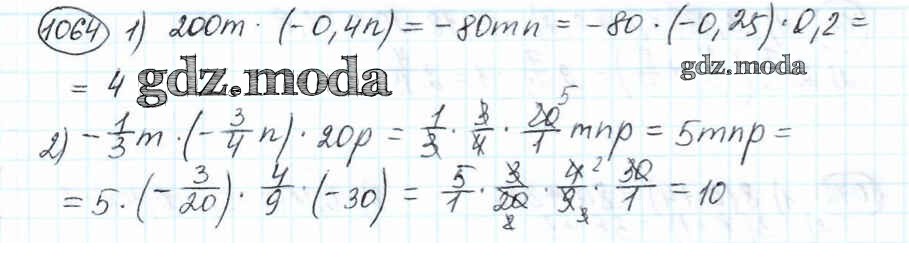 1064 1) 200m · (-0,4n) = -80mn = -80 · (-0,25) · 0,2 =
= 4 gdz.moda gdz.moda
2) -1/3 m · (-3/4 n) · 20p = 1/3 · 3/4 · 20/1 mnp = 5mnp =
= 5 · (-3/20) · 4/9 · (-30) = 5/1 · 3/20 · 4/9 · 30/1 = 10